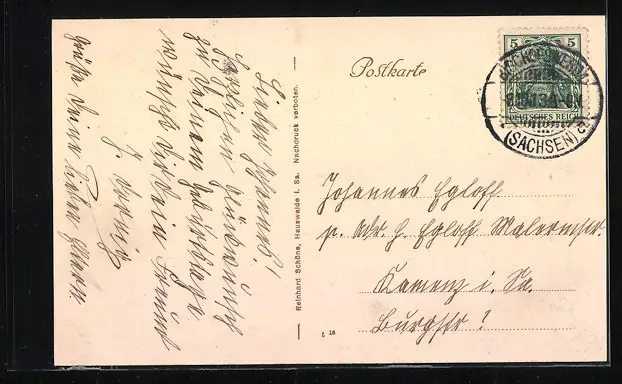 Lieber Johannes!
Herzlichen Glückwunsch
zu Deinem Geburtstage
wünscht Dir Dein Freund
J.
Grüße Deine lieben Eltern
Reinhard Schöne, Hauswalde i. Sa. Nachdruck verboten.
Postkarte
5 5
DEUTSCHES REICH
(SACHSEN)
Johannes Egloff
p. Adr. H. Egloff Malermstr.
Kamenz i. Sa.
Burgstr ?